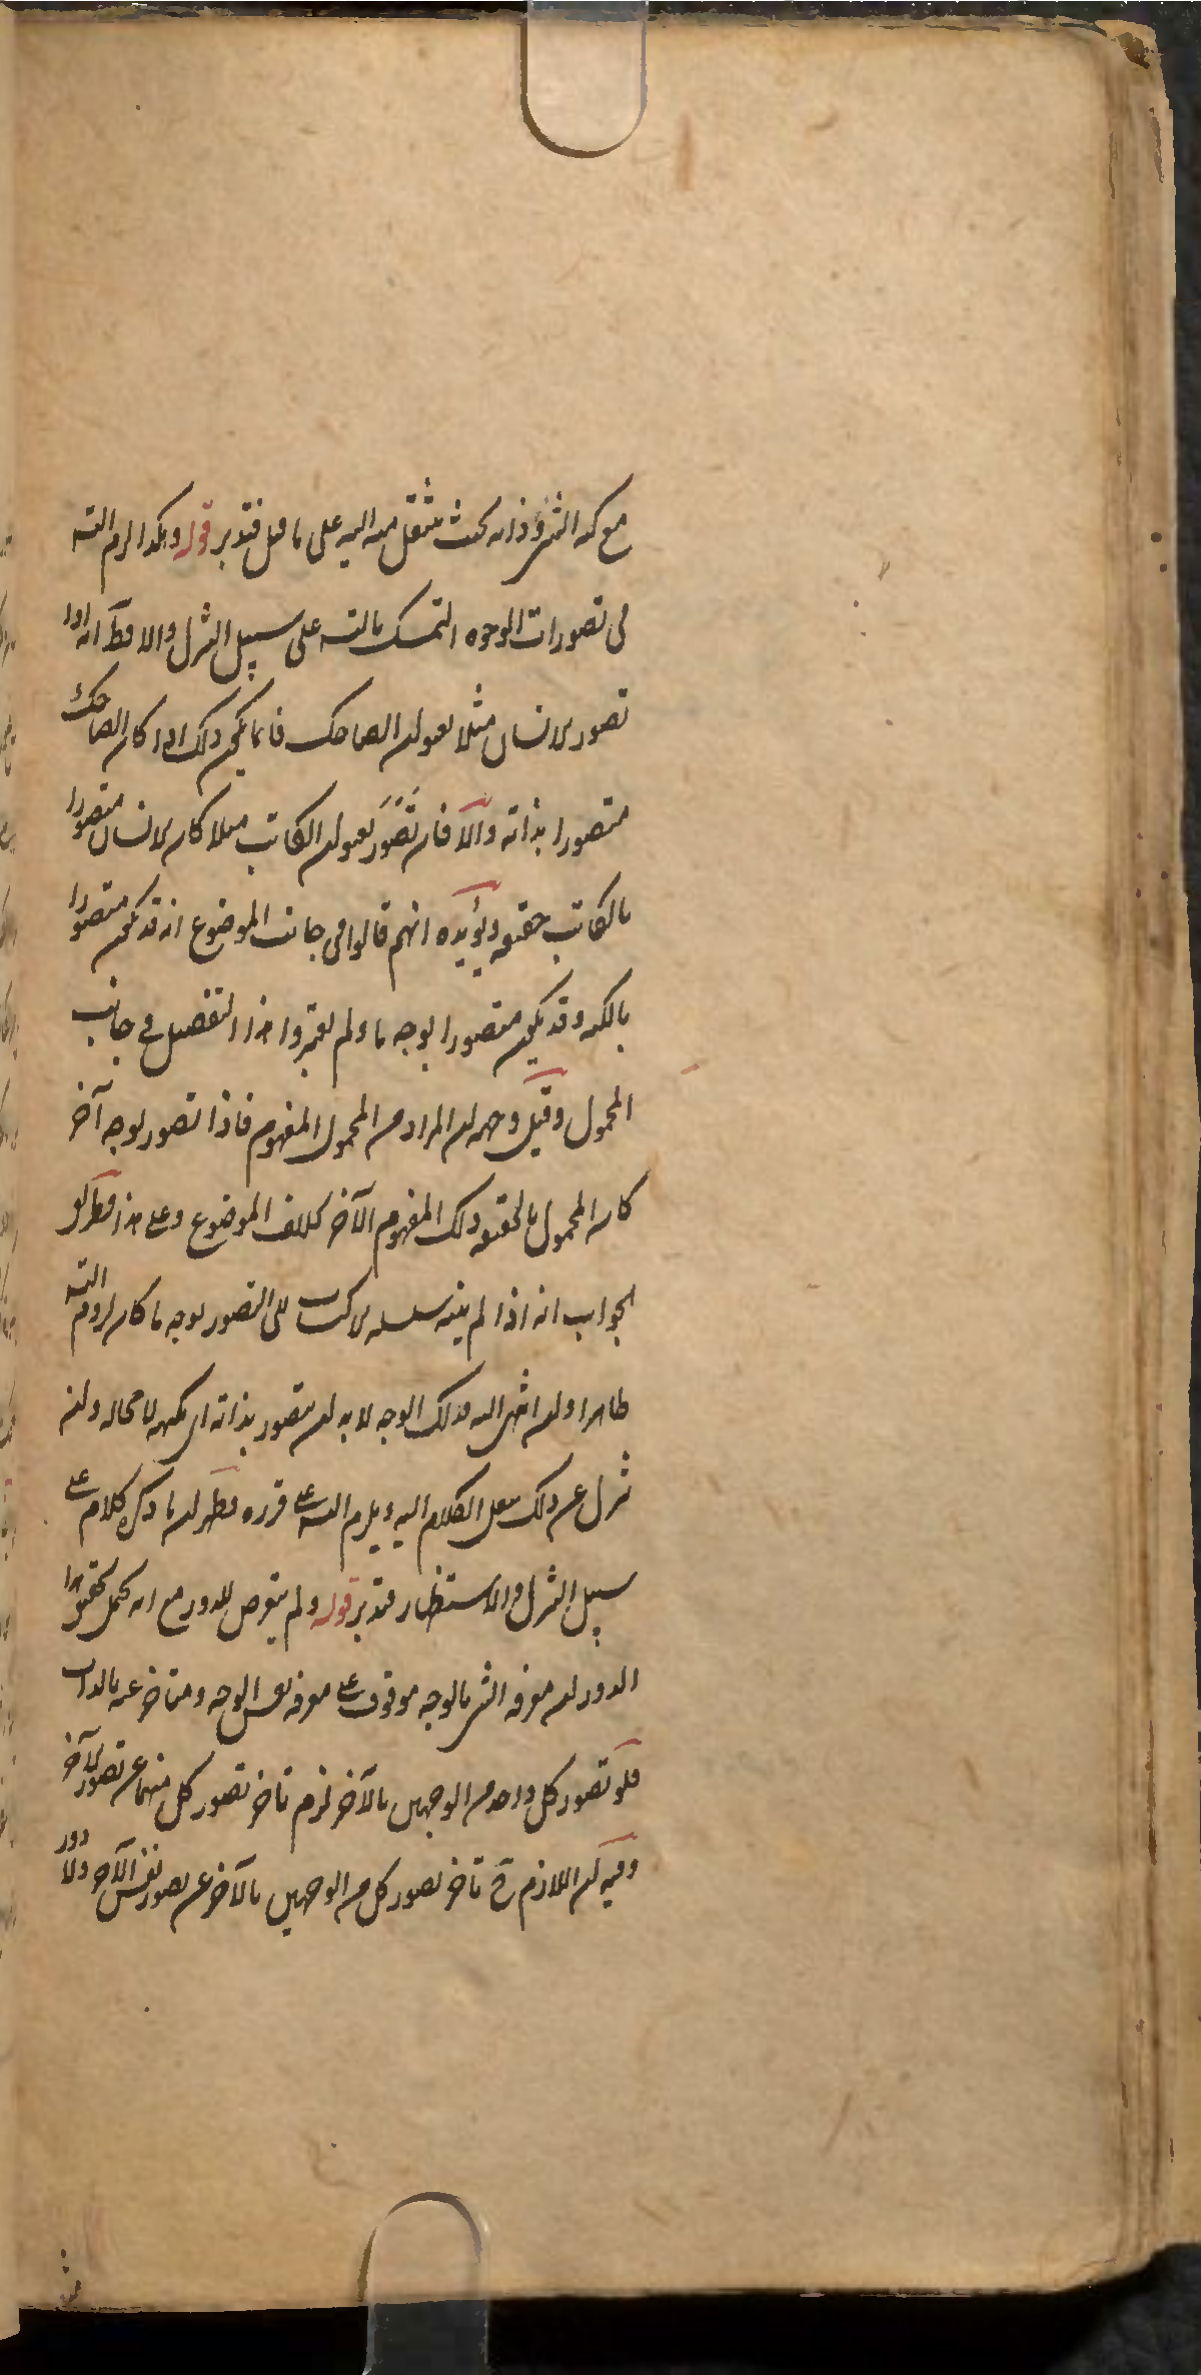 مع كنه الشئ وذاته بحيث ينتقل منه اليه على ما قيل فتدبر قوله وهكذا لزم التسـ
فى تصورات الوجوه التمسك بالتسـ على سبيل التنزل والا فظ انه اذا
تصور الانسان مثلا بعنوان الضاحك فانما يكون ذلك اذا كان الضاحك
متصورا بذاته والا فان تصور بعنوان الكاتب مثلا كان الانسان متصورا
بالكاتب حقيقة ويؤيده انهم قالوا فى جانب الموضوع انه قد يكون متصورا
بالكنه وقد يكون متصورا بوجه ما ولم يعتبروا هذا التفصيل فى جانب
المحمول وقيل وجهه ان المراد من المحمول المفهوم فاذا تصور بوجه آخر
كان المحمول بالحقيقة ذلك المفهوم الآخر بخلاف الموضوع وعلى هذا فتقرير
الجواب انه اذا لم ينته سلسلة الاكتساب الى التصور بوجه ما كان لزوم التسـ
ظاهرا وان انتهى اليه فذلك الوجه لا بد ان يتصور بذاته اى بكنهه لا محالة ولئن
تنزل عن ذلك ننقل الكلام اليه ويلزم التسـ على ما قرره فظهر ان ما ذكره كلام على
سبيل التنزل والاستظهار فتدبر قوله ولم يتعرض للدور مع انه يحتمل تحقق هذا
الدور لان معرفة الشئ بالوجه موقوف على معرفة نفس الوجه ومتاخر عنه بالذات
فلو تصور كل واحد من الوجهين بالآخر لزم تاخر تصور كل منهما عن تصور الآخر
وفيه ان اللازم ح تاخر تصور كل من الوجهين بالآخر عن تصور نفس الآخر ولا دور